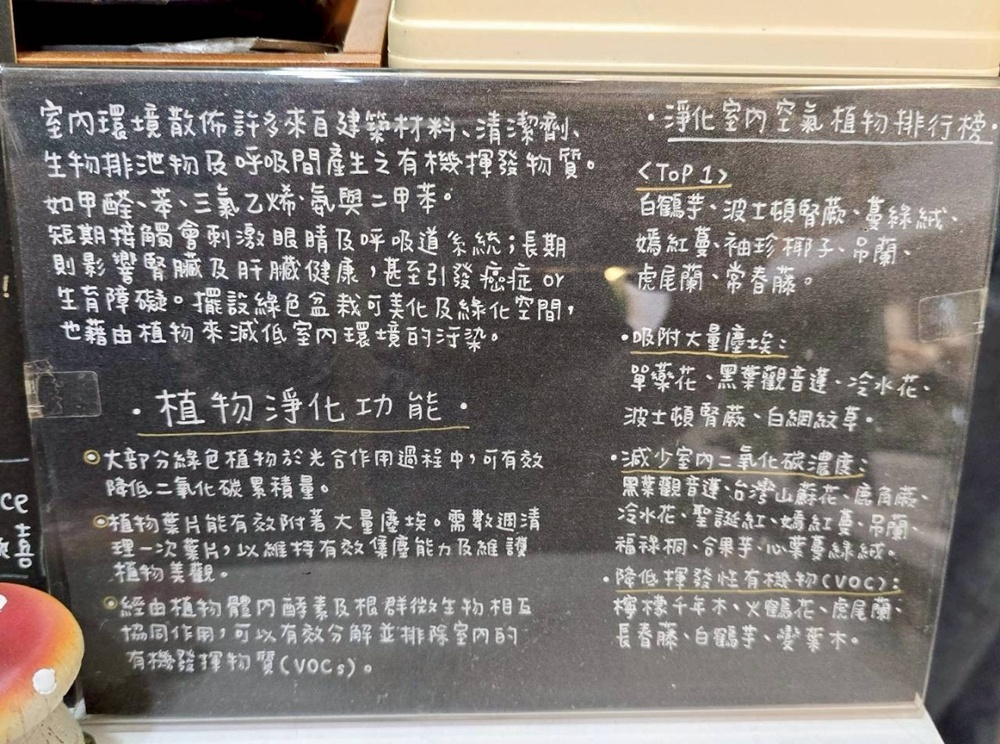 室內環境散佈許多來自建築材料、清潔劑、
生物排泄物及呼吸間產生之有機揮發物質。
如甲醛、苯、三氯乙烯、氨與二甲苯。
短期接觸會刺激眼睛及呼吸道系統；長期
則影響腎臟及肝臟健康，甚至引發癌症 or
生育障礙。擺設綠色盆栽可美化及綠化空間，
也藉由植物來減低室內環境的汙染。
·植物淨化功能·
◎大部分綠色植物於光合作用過程中，可有效
降低二氧化碳累積量。
◎植物葉片能有效附著大量塵埃。需數週清
理一次葉片，以維持有效集塵能力及維護
植物美觀。
◎經由植物體內酵素及根群微生物相互
協同作用，可以有效分解並排除室內的
有機發揮物質(VOCs)。
·淨化室內空氣植物排行榜·
<ToP 1>
白鶴芋、波士頓腎蕨、蔓綠絨、
嫣紅蔓、袖珍椰子、吊蘭、
虎尾蘭、常春藤。
·吸附大量塵埃：
單藥花、黑葉觀音蓮、冷水花、
波士頓腎蕨、白網紋草。
·減少室內二氧化碳濃度：
黑葉觀音蓮、台灣山蘇花、鹿角蕨、
冷水花、聖誕紅、嫣紅蔓、吊蘭、
福祿桐、合果芋、心葉蔓綠絨。
·降低揮發性有機物(VOC)：
檸檬千年木、火鶴花、虎尾蘭、
長春藤、白鶴芋、變葉木。
!
ce
喜